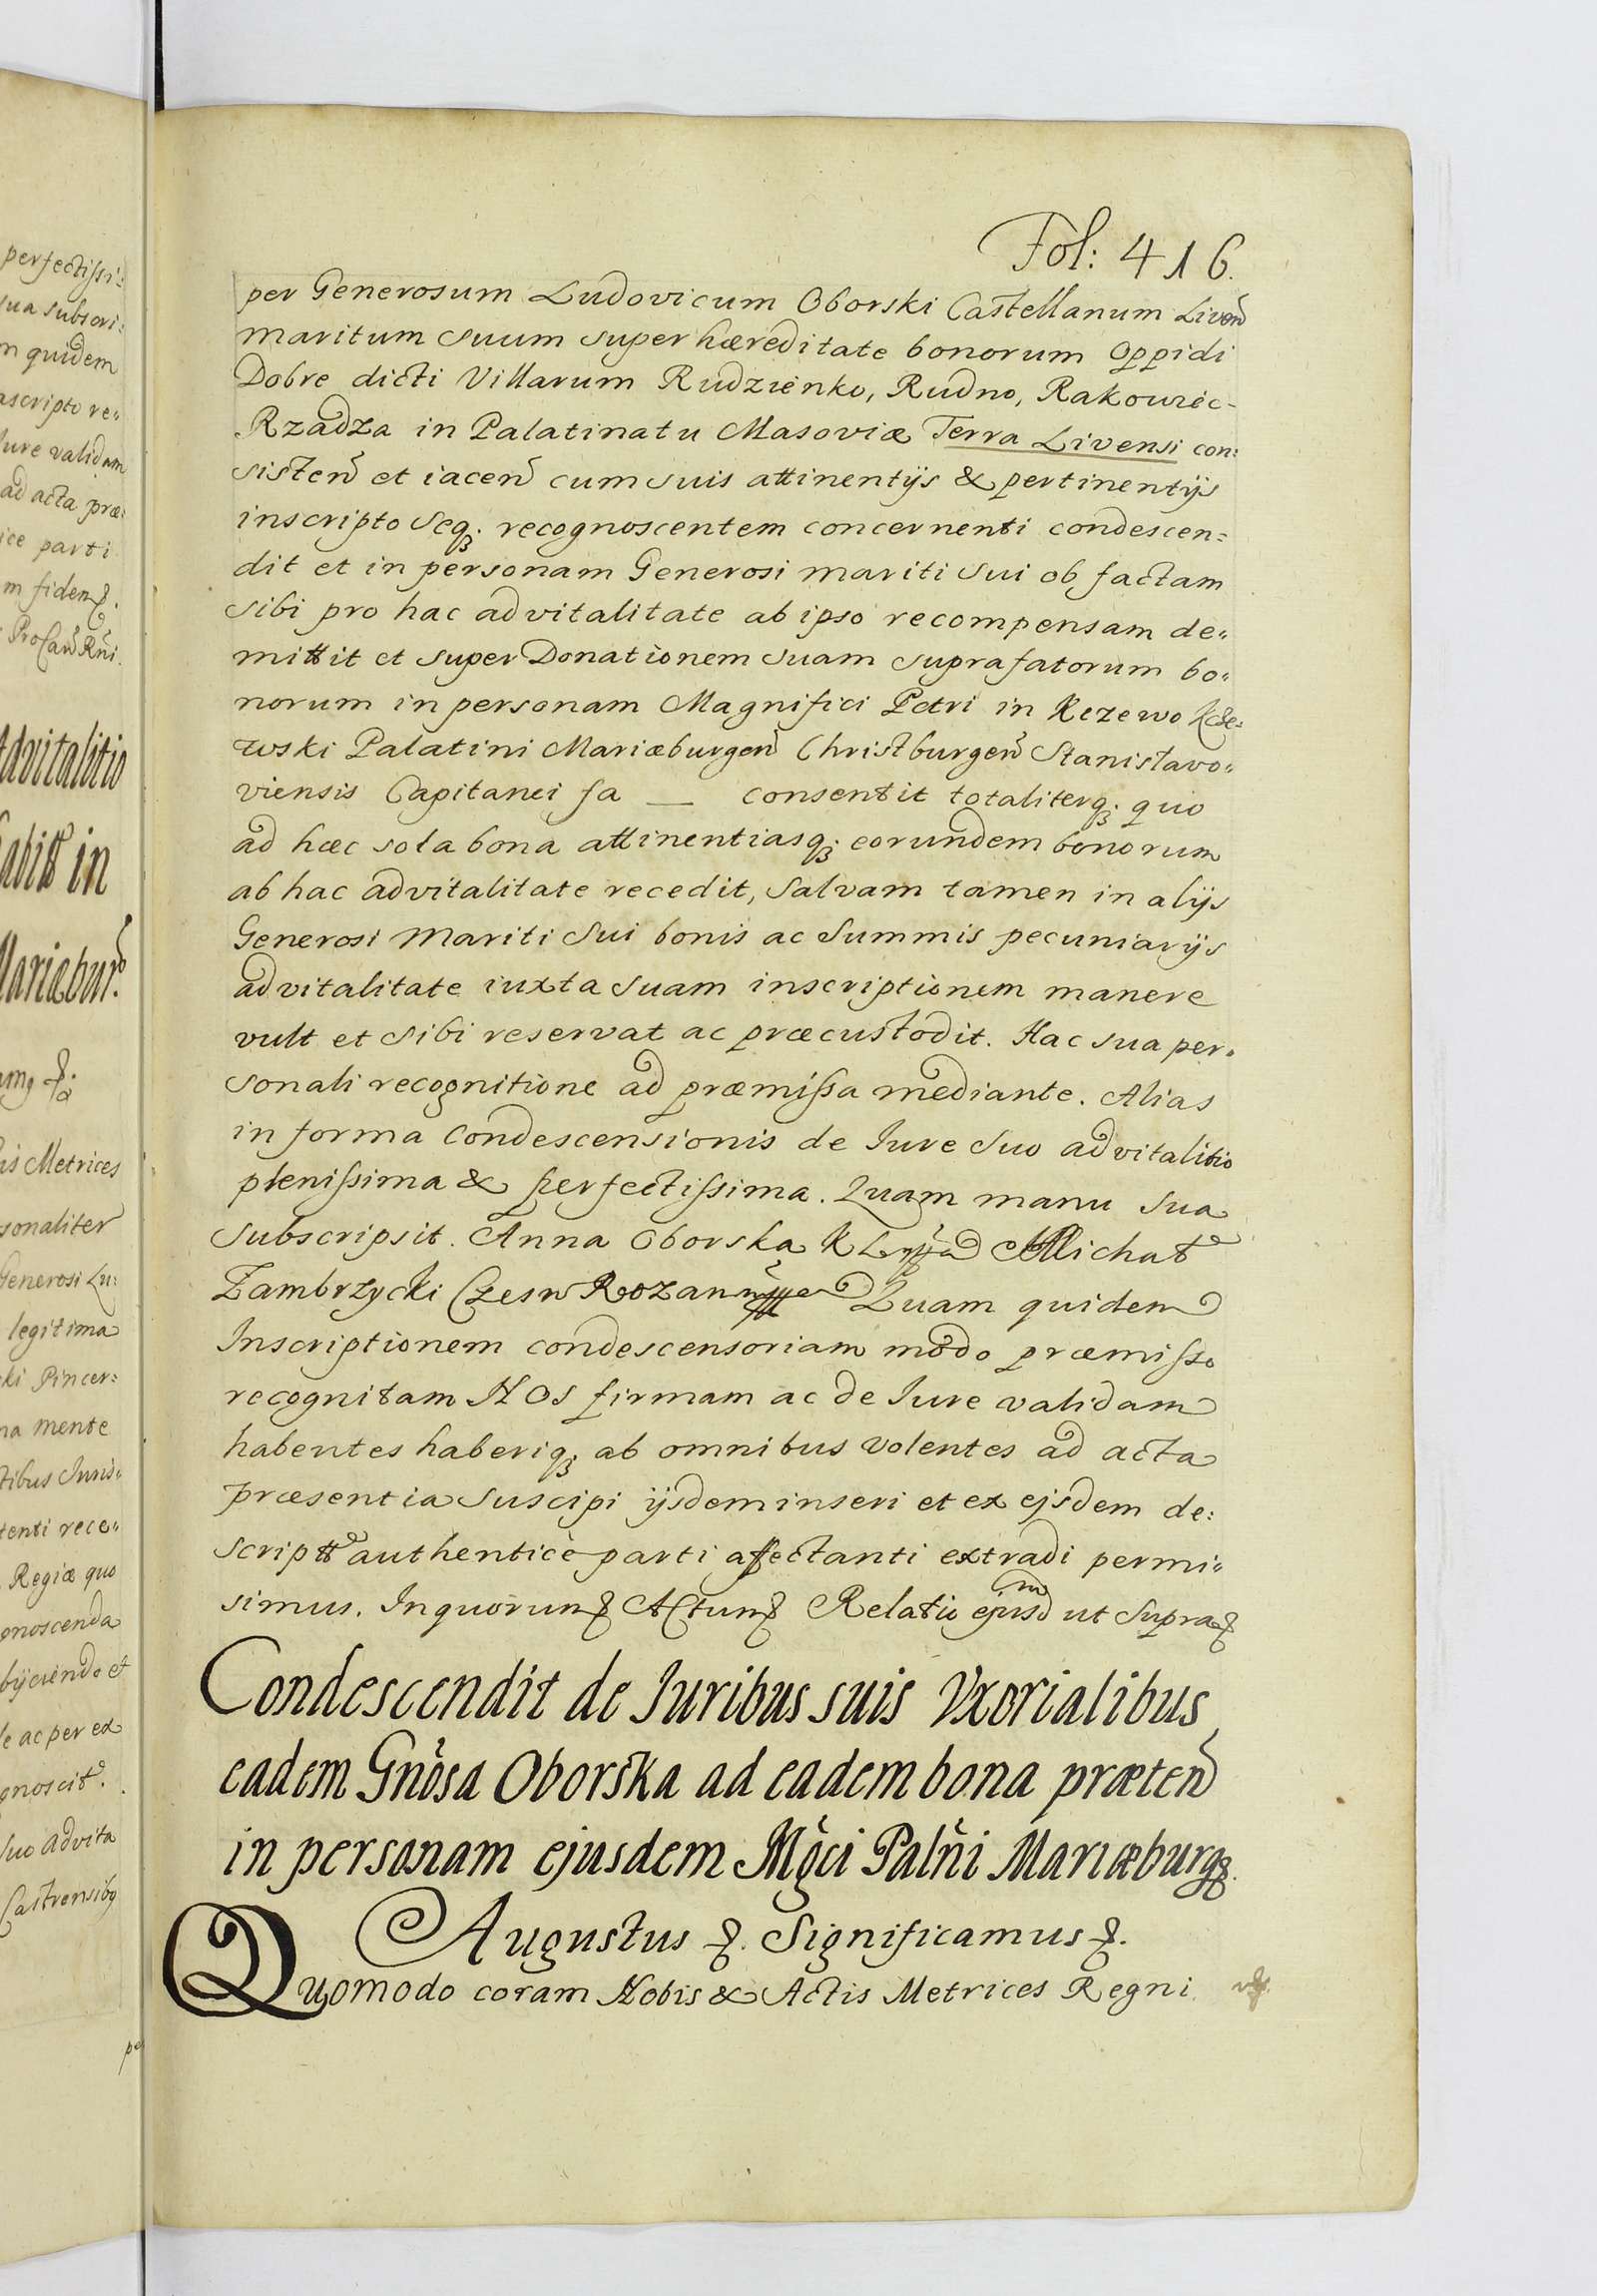 Fol: 416.
per Generosum Ludovicum Oborski Castellanum Liven̄
maritum suum super hæreditate bonorum Oppidi
Dobre dicti Villarum Rudzienko, Rudno, Rakowiec-
Rządza in Palatinatu Masoviæ Terra Livensi con:
sisten̄ et iacen̄ cum suis attinentijs & pertinentijs
inscripto seqꝫ recognoscentem concernenti condescen=
dit et in personam Generosi mariti sui ob factam
sibi pro hac advitalitate ab ipso recompensam de„
mittit et super Donationem suam suprafatorum bo„
norum in personam Magnifici Petri in Kczewo Kcze„
wski Palatini Mariæburgen̄ Christburgen̄ Stanisławo„
viensis Capitanei fa — consentit totaliterqꝫ quo
ad hæc sola bona attinentiasqꝫ eorundem bonorum
ab hac advitalitate recedit, salvam tamen in alijs
Generosi Mariti sui bonis ac summis pecuniarijs
advitalitate iuxta suam inscriptionem manere
vult et sibi reservat ac præcustodit. Hac sua per„
sonali recognitione ad præmissa mediante. Alias
in forma Condescensionis de Iure suo advitalitio
plenissima & perfectissima. Quam manu sua
subscripsit. Anna Oborska K Michał
Zambrzycki Czesn Quam quidem
Inscriptionem condescensoriam modo præmisso
recognitam NOS firmam ac de Iure validam
habentes haberiqꝫ ab omnibus volentes ad acta
præsentia suscipi ijsdem inseri et ex ejsdem de:
script authenticè parti affectanti extradi permi„
simus. In quorum & Actum & Relatio ejusdm ut supra &
Condescendit de Iuribus suis Vxorialibus
eadem Gnōsa Oborska ad eadem bona præten̄
in personam ejusdem Mg̃ci Palñi Mariæburg
Augustus &. Significamus &.
Quomodo coram Nobis & Actis Metrices Regni
perfectissi:
sua subscri:
m quidem
ascripto re„
Iure validam
ad acta præ:
ice parti
m fidem &.
Advitalitio
in
Mariæbur
is Metrices
sonaliter
Generosi Lu:
legitima
ki Pincer:
na mente
tibus Juris„
tenti rece„
Regiæ quo
gnoscenda
bijciendo et
le ac per ex
gnoscit.
suo advita
Castrensibꝫ